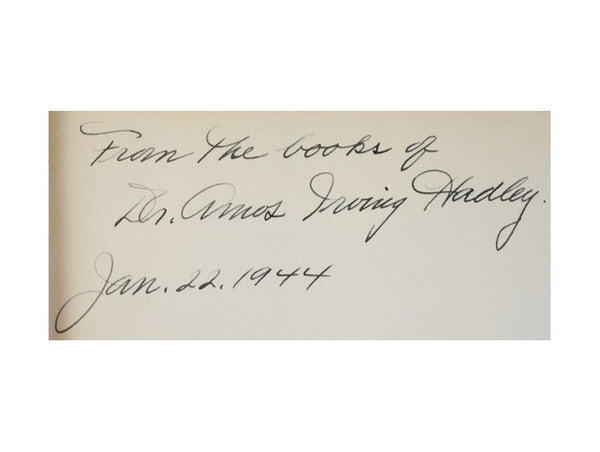 From the books of
Dr. Amos Irving Hadley.
Jan. 22. 1944